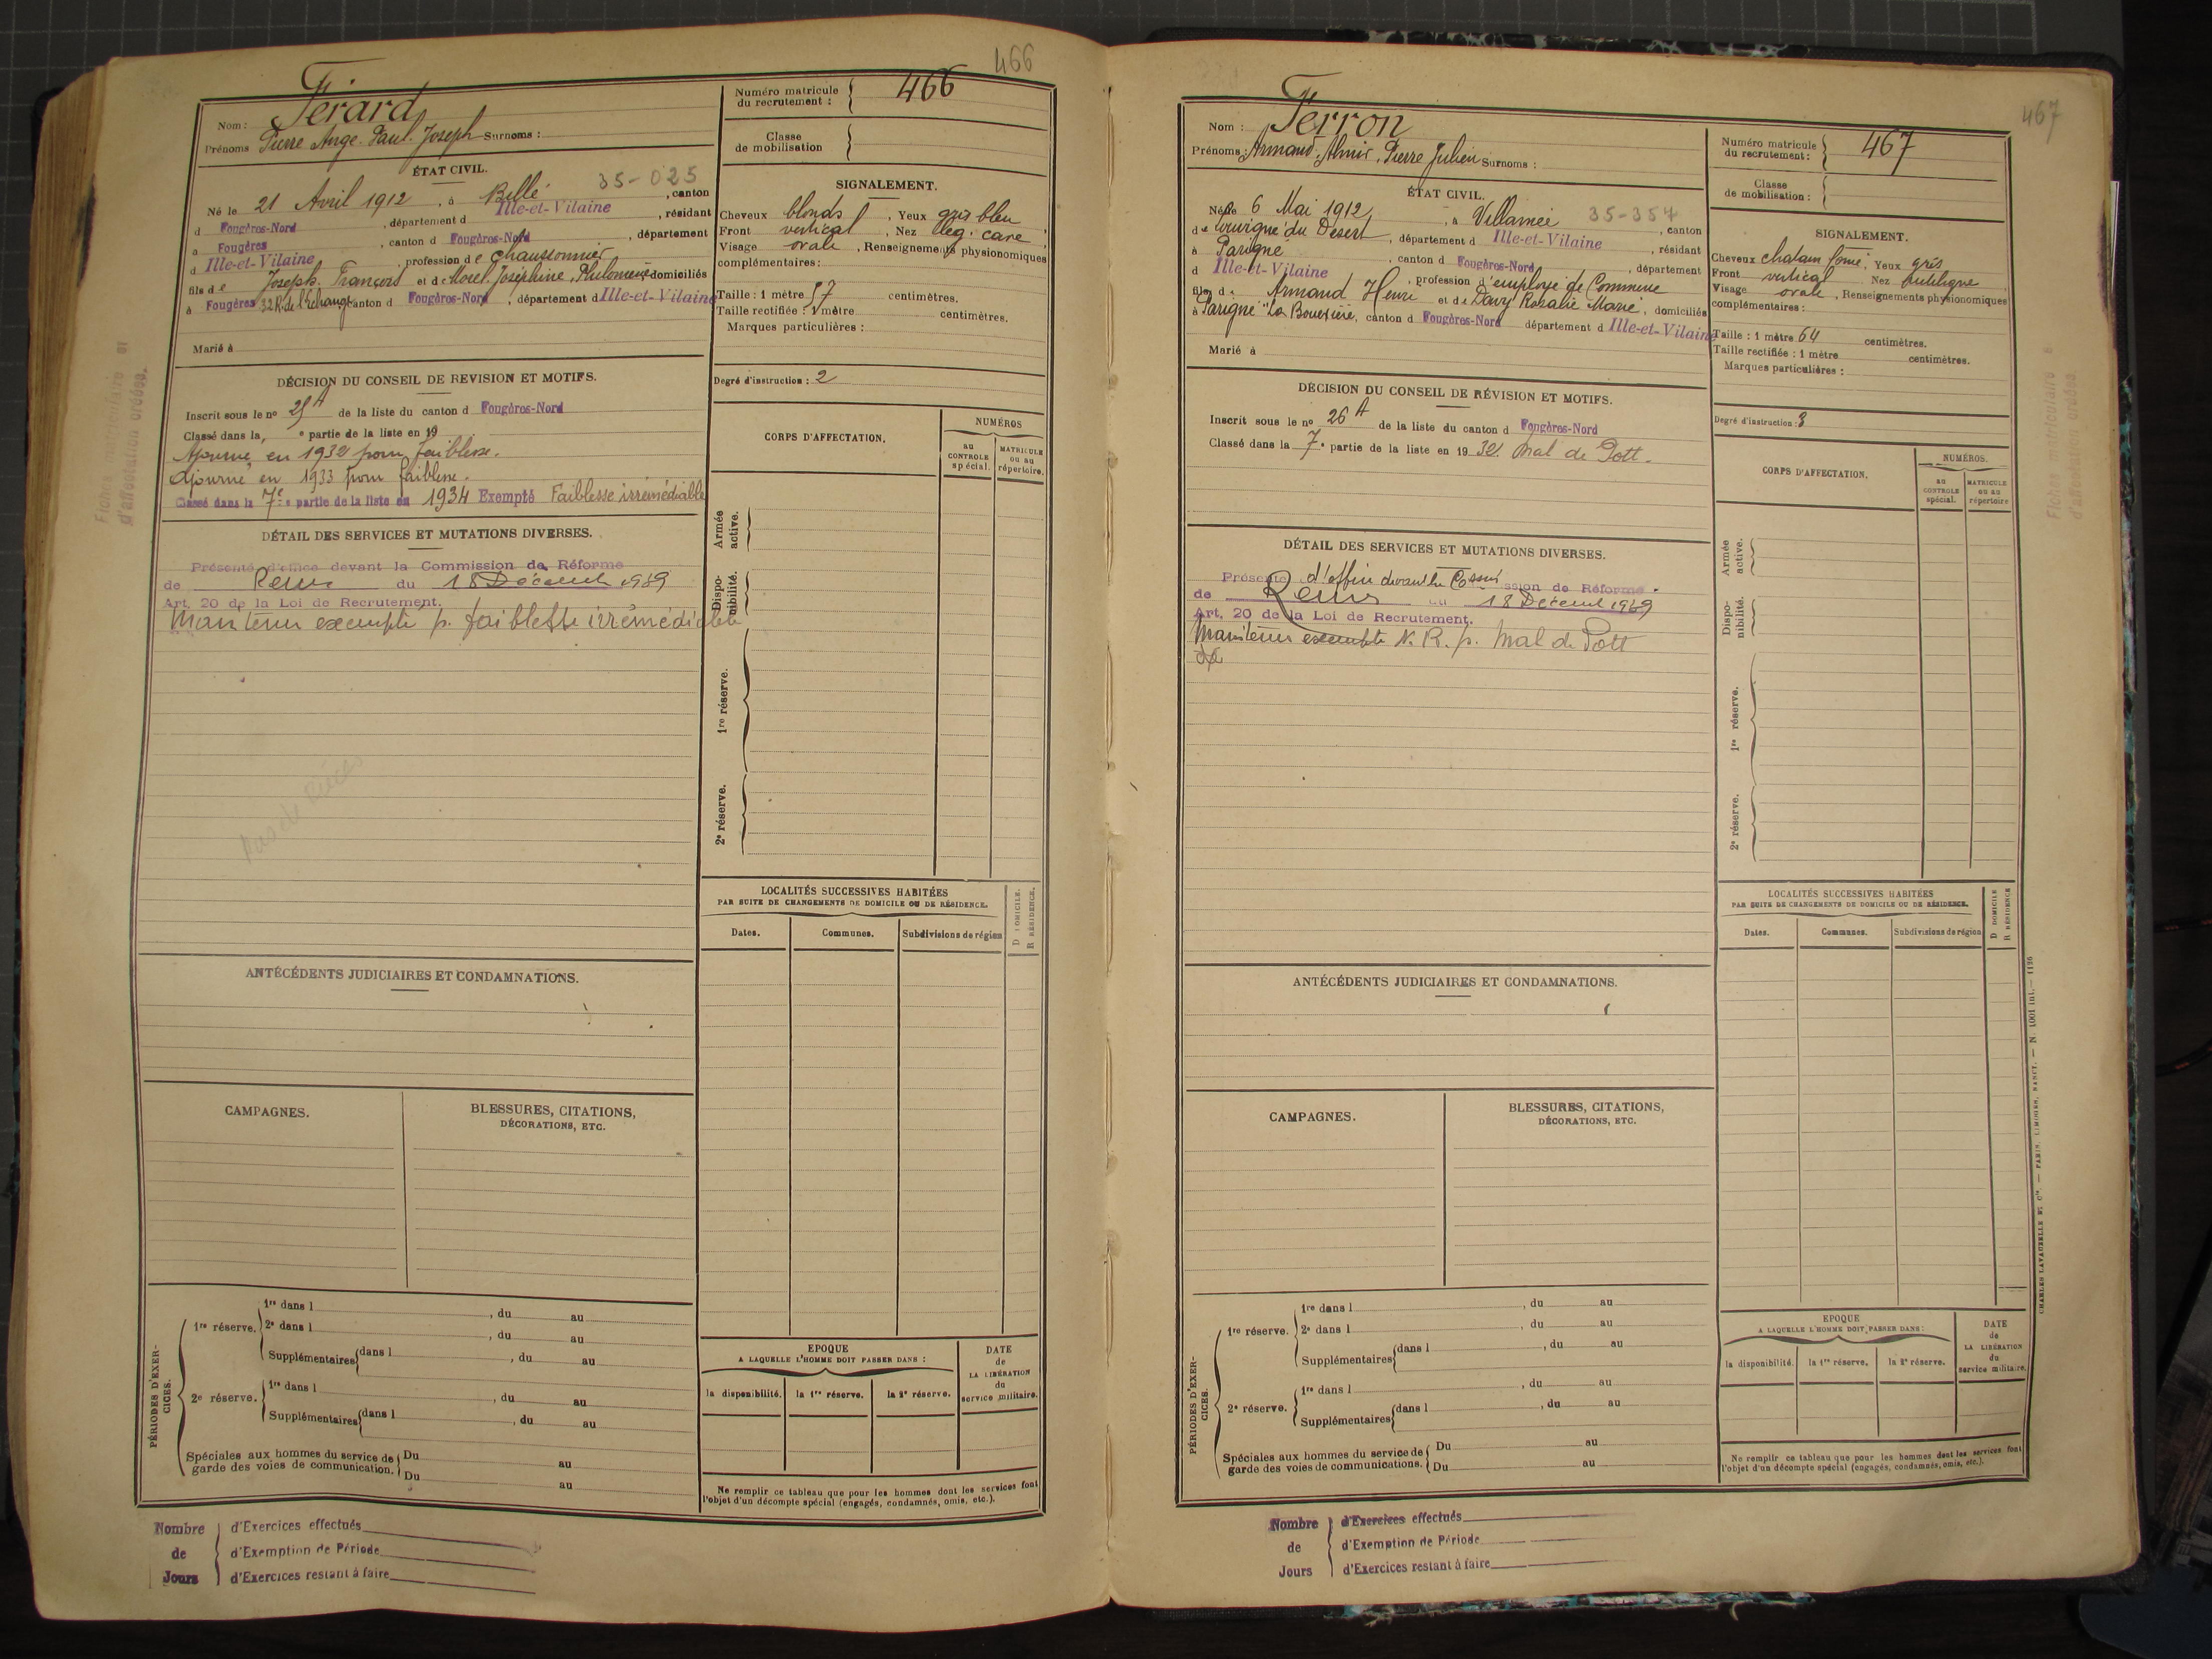 466
Nom : Férard
Prénoms Pierre Ange. Paul. Joseph Surnoms :
Numéro matricule du recrutement : 466
Classe de mobilisation
ÉTAT CIVIL.
35-025
Né le 21 Avril 1912, à Billé, canton
d Fougères-Nord, département d Ille-et-Vilaine, résidant
à Fougères, canton d Fougères-Nord, département
d Ille-et-Vilaine, profession de chaussonnier
fils de Joseph. François et de Morel Joséphine, Philomène domiciliés
à Fougères 32 R. de l'échange canton d Fougères-Nord, département d Ille-et-Vilaine
Marié à
SIGNALEMENT.
Cheveux blonds, Yeux gris bleu
Front vertical, Nez lég. cave
Visage ovale, Renseignements physionomiques
complémentaires :
Taille : 1 mètre 57 centimètres.
Taille rectifiée : 1 mètre centimètres.
Marques particulières :
Degré d'instruction : 2
DÉCISION DU CONSEIL DE REVISION ET MOTIFS.
Inscrit sous le nº 25 A de la liste du canton d Fougères-Nord
Classé dans la e partie de la liste en 19
Ajourné en 1932 pour faiblesse.
Ajourné en 1933 pour faiblesse.
Classé dans la 7e partie de la liste en 1934 Exempté Faiblesse irrémédiable
DÉTAIL DES SERVICES ET MUTATIONS DIVERSES.
Présenté d'office devant la Commission de Réforme
de Rennes du 18 Décembre 1939
Art. 20 de la Loi de Recrutement.
Maintenu exempté p. faiblesse irrémédiable
pas de pièces
CORPS D'AFFECTATION.
NUMÉROS
au CONTROLE spécial.
MATRICULE ou au répertoire.
Armée active.
Disponibilité.
1re réserve.
2e réserve.
LOCALITÉS SUCCESSIVES HABITÉES
PAR SUITE DE CHANGEMENTS DE DOMICILE OU DE RÉSIDENCE.
D DOMICILE.
R RÉSIDENCE.
Dates. Communes. Subdivisions de région
ANTÉCÉDENTS JUDICIAIRES ET CONDAMNATIONS.
CAMPAGNES.
BLESSURES, CITATIONS,
DÉCORATIONS, ETC.
PÉRIODES D'EXERCICES.
1re réserve. 1re dans l , du au
2e dans l , du au
Supplémentaires dans l , du au
2e réserve. 1re dans l , du au
Supplémentaires dans l , du au
Spéciales aux hommes du service de garde des voies de communication. Du au
Du au
EPOQUE
A LAQUELLE L'HOMME DOIT PASSER DANS :
la disponibilité. la 1re réserve. la 2e réserve.
DATE de LA LIBÉRATION du service militaire.
Ne remplir ce tableau que pour les hommes dont les services font
l'objet d'un décompte spécial (engagés, condamnés, omis, etc.).
Nombre de Jours
d'Exercices effectués
d'Exemption de Période
d'Exercices restant à faire
Fiches matriculaire et
d'affectation créées.
467
Nom : Ferron
Prénoms : Armand, Almir, Pierre Julien Surnoms :
Numéro matricule du recrutement : 467
Classe de mobilisation :
ÉTAT CIVIL.
Né le 6 Mai 1912, à Villamée 35-357, canton
de Louvigné du Désert, département d Ille-et-Vilaine, résidant
à Parigné, canton d Fougères-Nord, département
d Ille-et-Vilaine, profession d'employé de Commerce
fils d Armand Henri et de Davy Rosalie Marie, domiciliés
à Parigné "La Bouexière, canton d Fougères-Nord département d Ille-et-Vilaine
Marié à
SIGNALEMENT.
Cheveux chatain foncé, Yeux gris
Front vertical Nez rectiligne
Visage ovale, Renseignements physionomiques
complémentaires :
Taille : 1 mètre 64 centimètres.
Taille rectifiée : 1 mètre centimètres.
Marques particulières :
Degré d'instruction : 3
DÉCISION DU CONSEIL DE RÉVISION ET MOTIFS.
Inscrit sous le nº 26 A de la liste du canton d Fougères-Nord
Classé dans la 7e partie de la liste en 1932 Mal de Pott.
DÉTAIL DES SERVICES ET MUTATIONS DIVERSES.
Présenté d'office devant la Commission de Réforme.
de Rennes du 18 Décembre 1939
Art. 20 de la Loi de Recrutement.
Maintenu exempté N. R. p. Mal de Pott
CORPS D'AFFECTATION.
NUMÉROS.
au CONTROLE spécial.
MATRICULE ou au répertoire
Armée active.
Disponibilité.
1re réserve.
2e réserve.
LOCALITÉS SUCCESSIVES HABITÉES
PAR SUITE DE CHANGEMENTS DE DOMICILE OU DE RÉSIDENCE.
D DOMICILE
R RÉSIDENCE
Dates. Communes. Subdivisions de région
ANTÉCÉDENTS JUDICIAIRES ET CONDAMNATIONS.
CAMPAGNES.
BLESSURES, CITATIONS,
DÉCORATIONS, ETC.
PÉRIODES D'EXERCICES.
1re réserve. 1re dans l , du au
2e dans l , du au
Supplémentaires dans l , du au
2e réserve. 1re dans l , du au
Supplémentaires dans l , du au
Spéciales aux hommes du service de garde des voies de communications. Du au
Du au
EPOQUE
A LAQUELLE L'HOMME DOIT PASSER DANS :
la disponibilité. la 1re réserve. la 2e réserve.
DATE de LA LIBÉRATION du service militaire.
Ne remplir ce tableau que pour les hommes dont les services font
l'objet d'un décompte spécial (engagés, condamnés, omis, etc.).
CHARLES-LAVAUZELLE ET Cie. — PARIS, LIMOGES, NANCY. — N. 1001 int. — 1126
Nombre de Jours
d'Exercices effectués
d'Exemption de Période
d'Exercices restant à faire